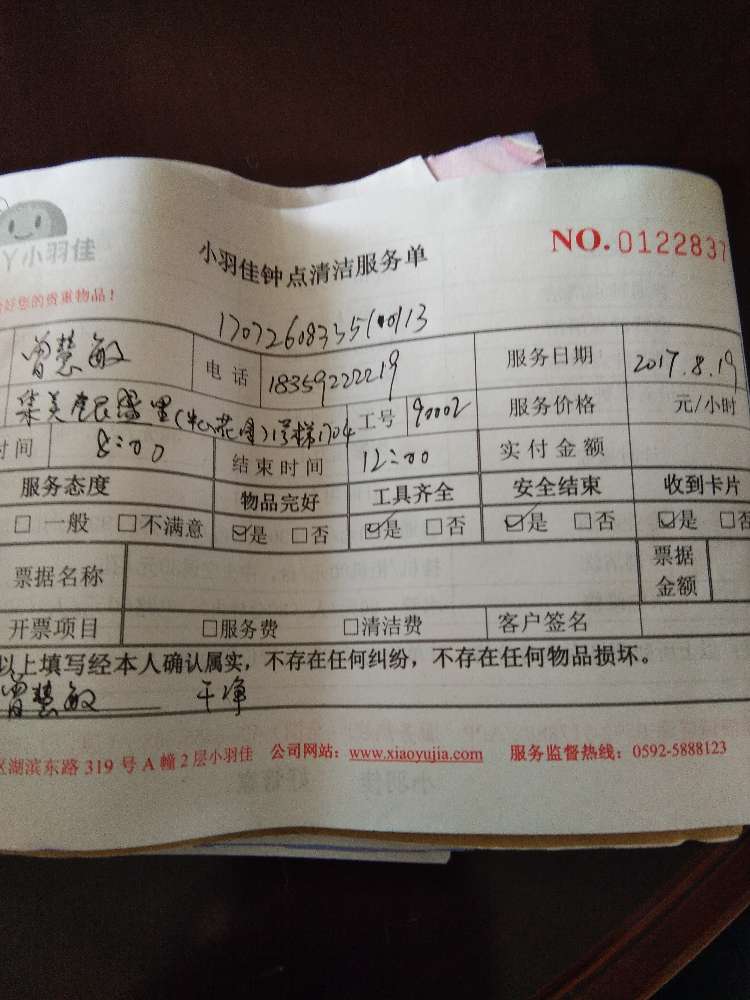 小羽佳
小羽佳钟点清洁服务单
NO. 0122837
好您的贵重物品！
曾慧敏 电话 18359222219 服务日期 2017.8.19
工号 90002 服务价格 元/小时
时间 8:00 结束时间 12:00 实付金额
服务态度 物品完好 工具齐全 安全结束 收到卡片
□ 一般 □不满意 ☑是 □否 ☑是 □否 ☑是 □否 ☑是 □否
票据名称 票据金额
开票项目 □服务费 □清洁费 客户签名
以上填写经本人确认属实，不存在任何纠纷，不存在任何物品损坏。
曾慧敏 干净
区湖滨东路 319 号 A 幢 2 层小羽佳 公司网站：www.xiaoyujia.com 服务监督热线：0592-5888123